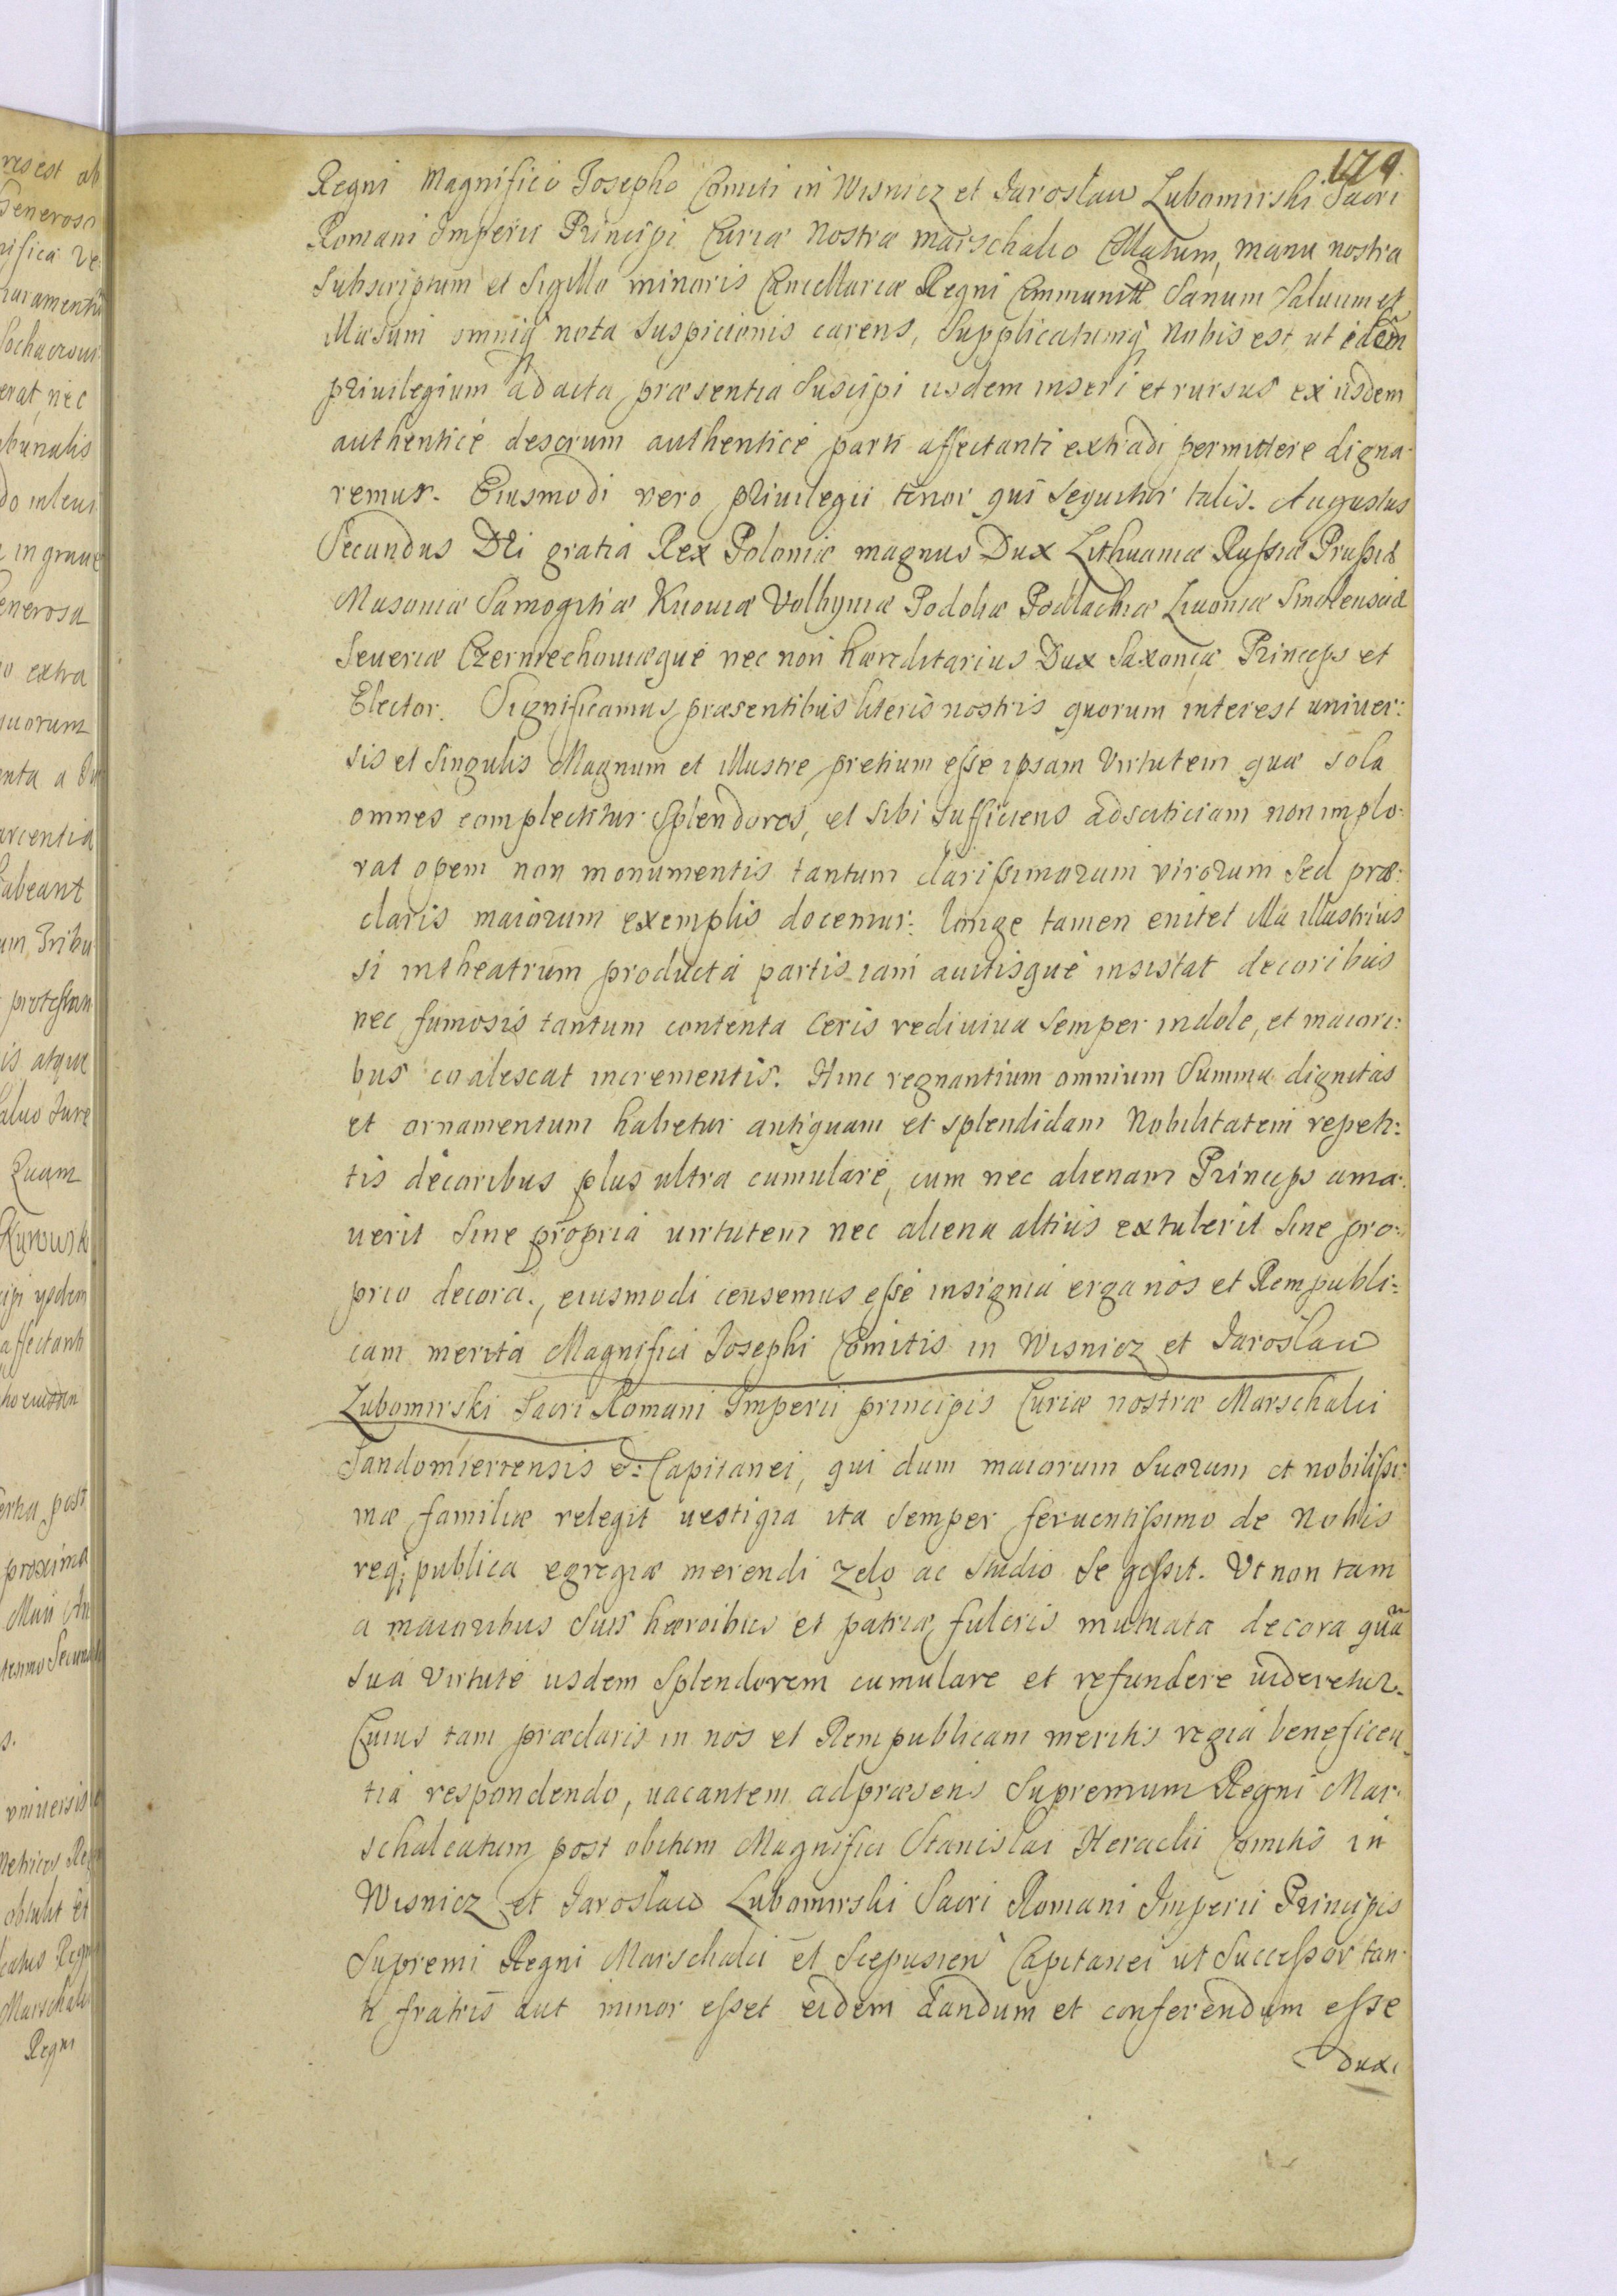 179.
Regni Magnifico Josepho Comiti in Wisnicz et Jaroslaw Lubomirski Sacri
Romani Imperii Principi Curiæ Nostræ Marschalco Collatum, manu nostra
Subscriptum et Sigillo minoris Cancellariæ Regni Communitt Sanum Saluum et
Illæsum omniq nota suspicionis carens, Supplicatumq Nobis est, ut idem
priuilegium ad acta præsentia Suscipi iisdem inseri et rursus ex iisdem
authentice descrum authentice parti affectanti extradi permittere digna-
remur. Eiusmodi vero priuilegii tenor qui sequitur talis. Augustus
Secundus Dei gratia Rex Poloniæ magnus Dux Lithuaniæ Russiæ Prussiæ
Masouiæ Samogitiæ Kijouiæ Volhyniæ Podoliæ Podlachiæ Liuoniæ Smolensciæ
Seueriæ Czerniechouiæque nec non hæreditarius Dux Saxoniæ Princeps et
Elector. Significamus præsentibus literis nostris quorum interest uniuer:
sis et Singulis Magnum et illustre pretium esse ipsam Virtutem quæ sola
omnes complectitur Splendores, et sibi sufficiens adscititiam non implo-
rat opem non monumentis tantum clarissimorum virorum Sed præ:
claris maiorum exemplis docemur: longe tamen enitet illa illustrius
si intheatrum producta partis iam auitisque insistat decoribus
nec fumosis tantum contenta Ceris rediuiua Semper indole, et maiori:
bus coalescat incrementis. Hinc regnantium omnium Summa dignitas
et ornamentum habetur antiquam et splendidam Nobilitatem repeti:
tis decoribus plus ultra cumulare, cum nec alienam Princeps ama:
uerit Sine propria uirtutem nec aliena altius extulerit Sine pro:
prio decora., eiusmodi censemus esse insignia erga nos et Rempubli:
cam merita Magnifici Josephi Comitis in Wisnicz et Jaroslaw
Lubomirski Sacri Romani Imperii principis Curiæ nostræ Marschalci
Sandomierensis &: Capitanei, qui dum maiorum Suorum et nobilissi:
mæ familiæ relegit uestigia ita Semper feruentissimo de Nobis
req; publica egregiæ merendi zelo ac studio Se gessit. Ut non tam
a maioribus Suis hæroibus et patriæ fulcris mutuata decora qua
Sua Virtute iisdem Splendorem cumulare et refundere uideretur.
Cuius tam præclaris in nos et Rempublicam meritis regia beneficen
tia respondendo, uacantem adpræsens Supremum Regni Mar-
schalcatum post obitum Magnifici Stanislai Heraclii Comitis in
Wisnicz et Jaroslaw Lubomirski Sacri Romani Imperii Principis
Supremi Regni Marschalci et Scepusien Capitanei ut Successor tan-
ti fratris aut minor esset eidem dandum et conferendum esse
duxi